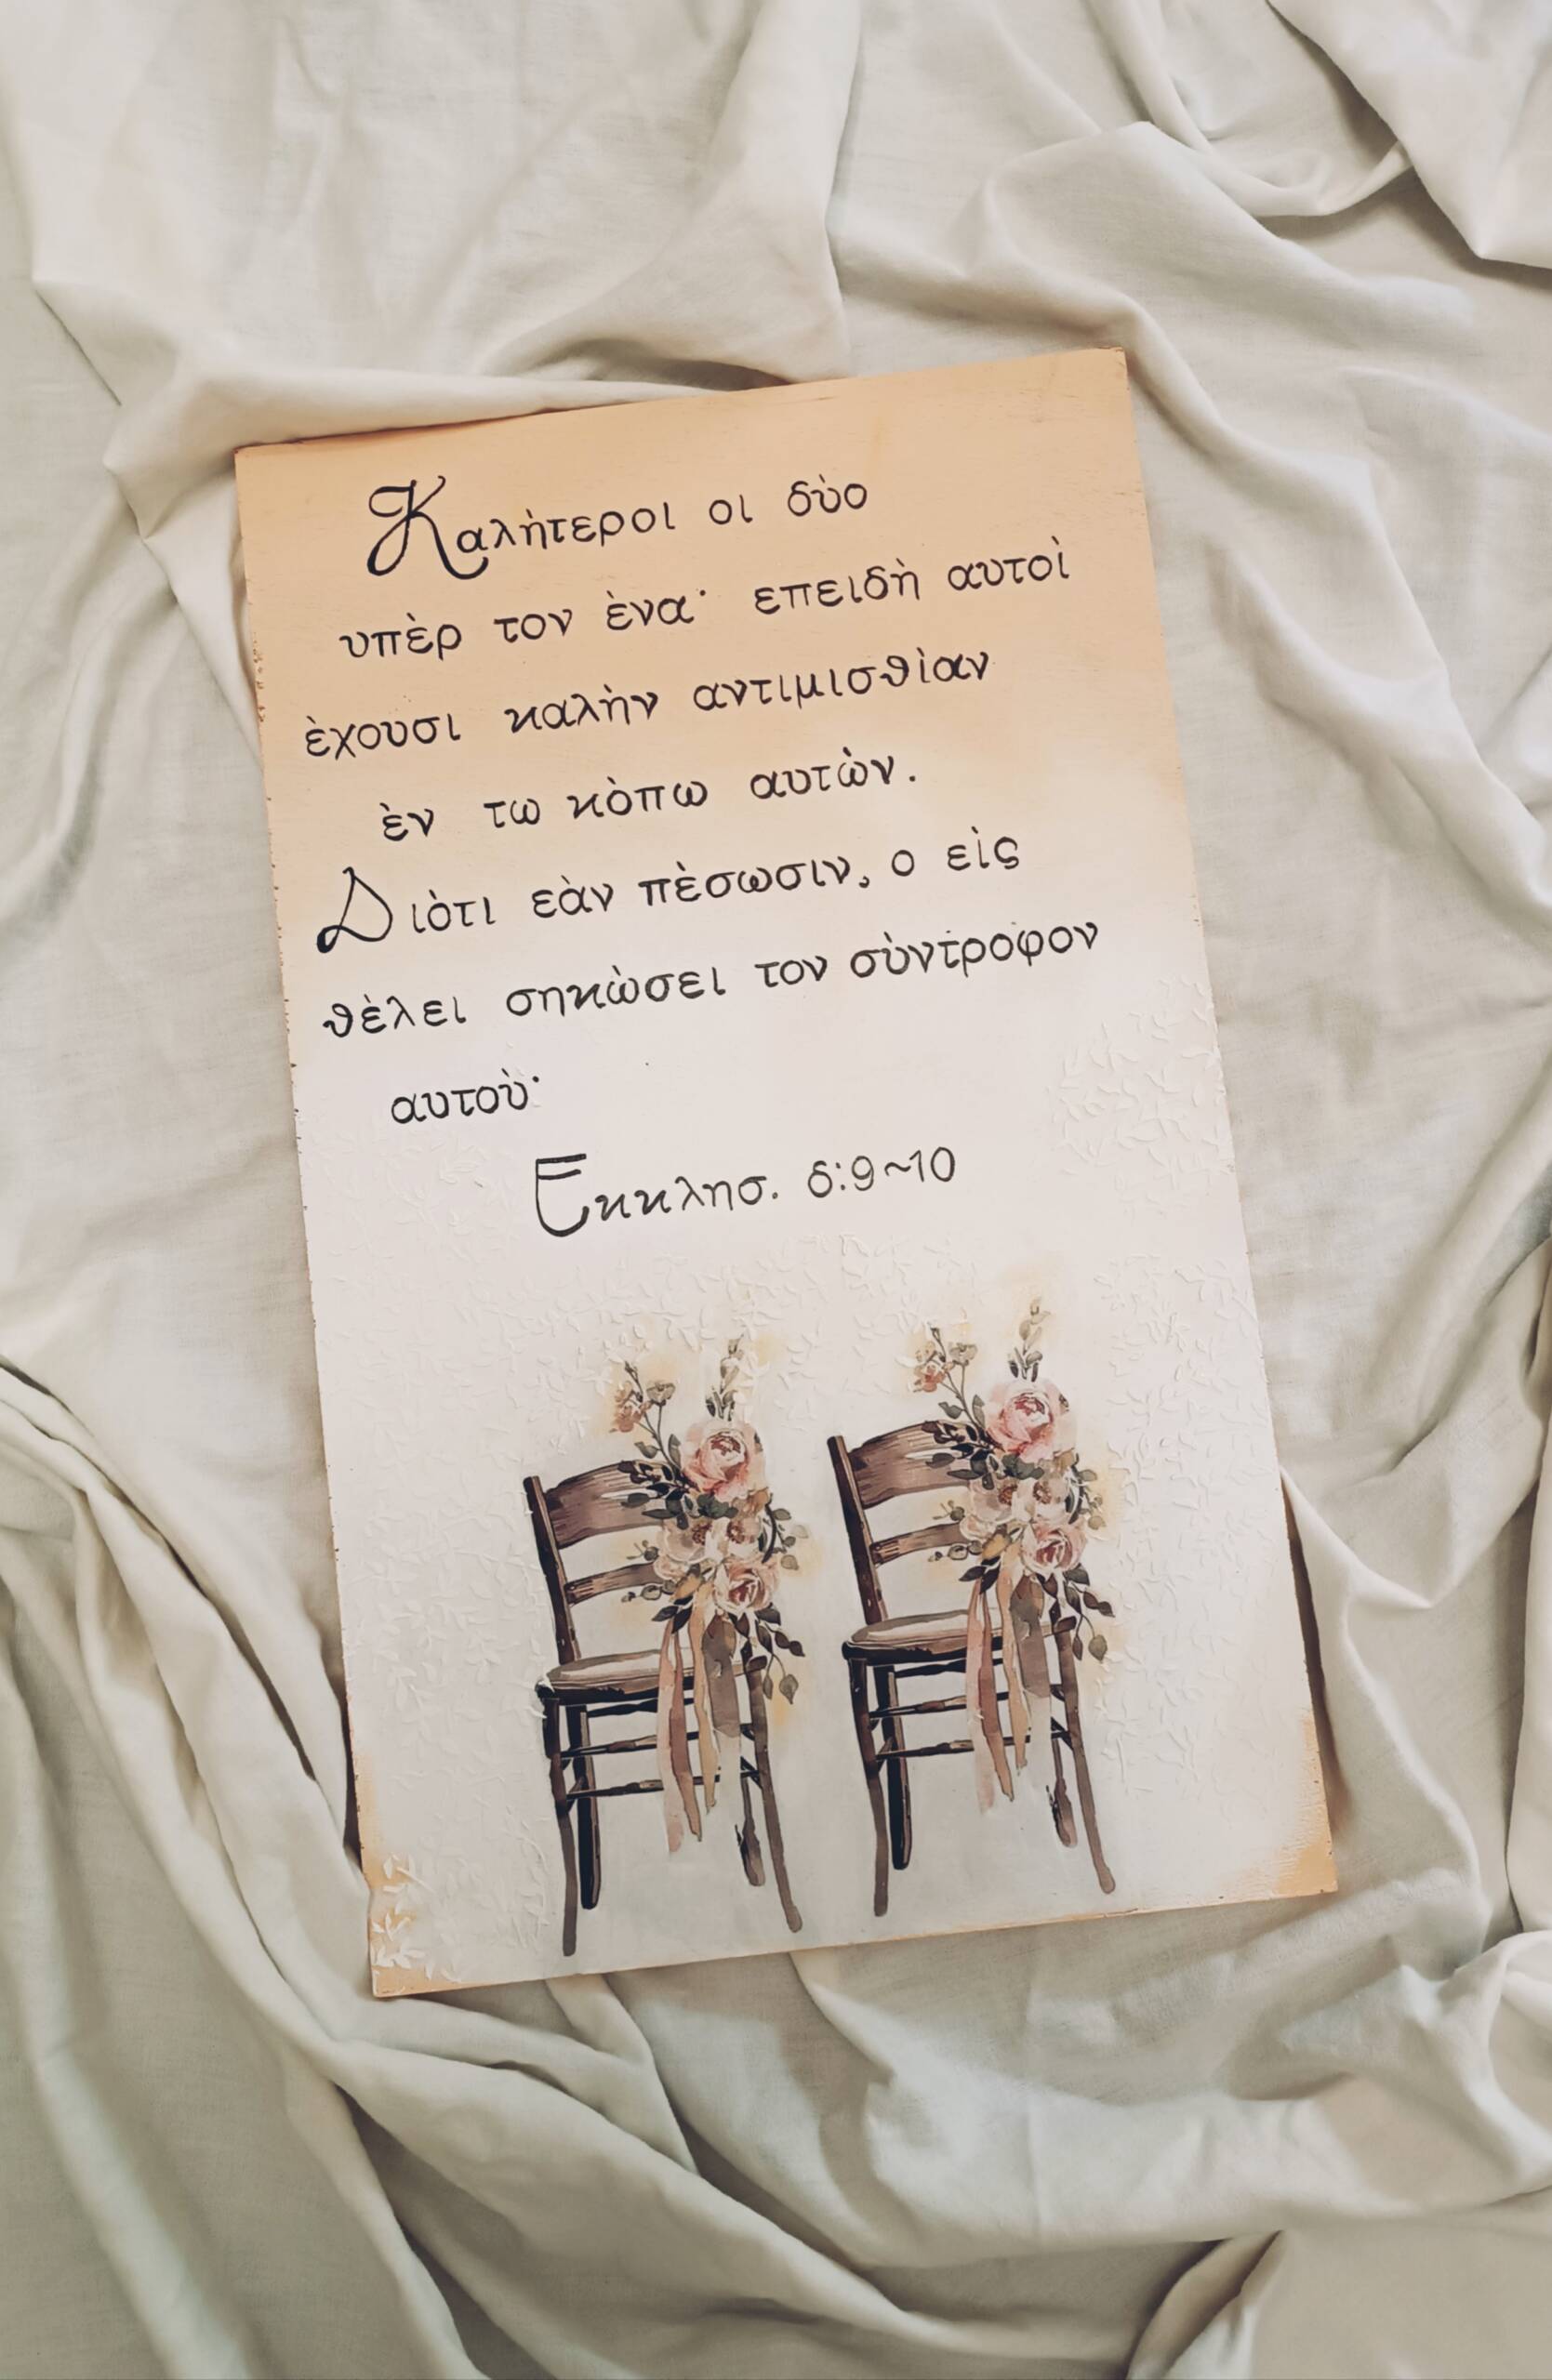 Καλὴτεροι οι δὺο
υπὲρ τον ὲνα· επειδὴ αυτοὶ
ὲχουσι καλὴν αντιμισθὶαν
ὲν τω κὸπω αυτὼν.
Διὸτι εὰν πὲσωσιν, ο εὶς
θὲλει σηκὼσει τον σὺντροφον
αυτοὺ·
Εκκλησ. δ:9~10